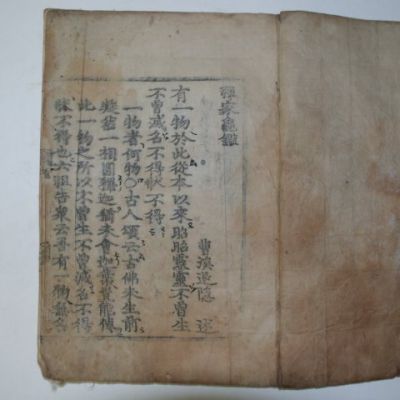 禪家龜鑑
曹溪退隱 述
有一物於此從本以來昭昭靈靈不曾生
不曾滅名不得狀不得
一物者何物○古人頌云古佛未生前
凝然一相圓釋迦猶未會迦葉豈能傳
此一物之所以不曾生不曾滅名不得
狀不得也六祖告衆云吾有一物無名